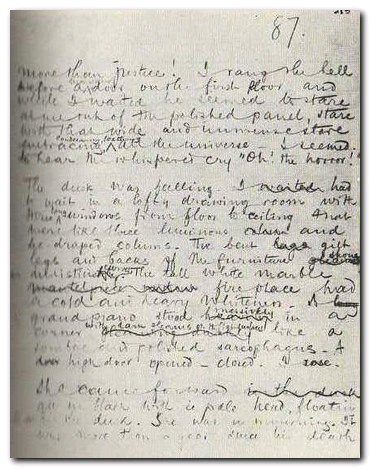 87.
more than justice! I rang the bell
before a door on the first floor and
while I waited he seemed to stare
at me out of the polished panel, stare
with that wide and immense stare
embracing condemning loathing all the universe. I seemed
to hear the whispered cry "Oh! the horror!"
The dusk was falling. I waited had
to wait in a lofty drawing room with
three long windows from floor to ceiling that
were like three luminous and
be draped columns. The bent gilt
legs and backs of the furniture shone
in indistinct curves. The tall white marble
fire place had
a cold and heavy whiteness. A
grand piano stood massively in a
corner with gleams like a
sombre and polished sarcophagus. A
door high door opened – closed. I rose.
She came forward in the dusk
all in black with a pale head, floating
in the dusk. She was in mourning. It
was more than a year since his death